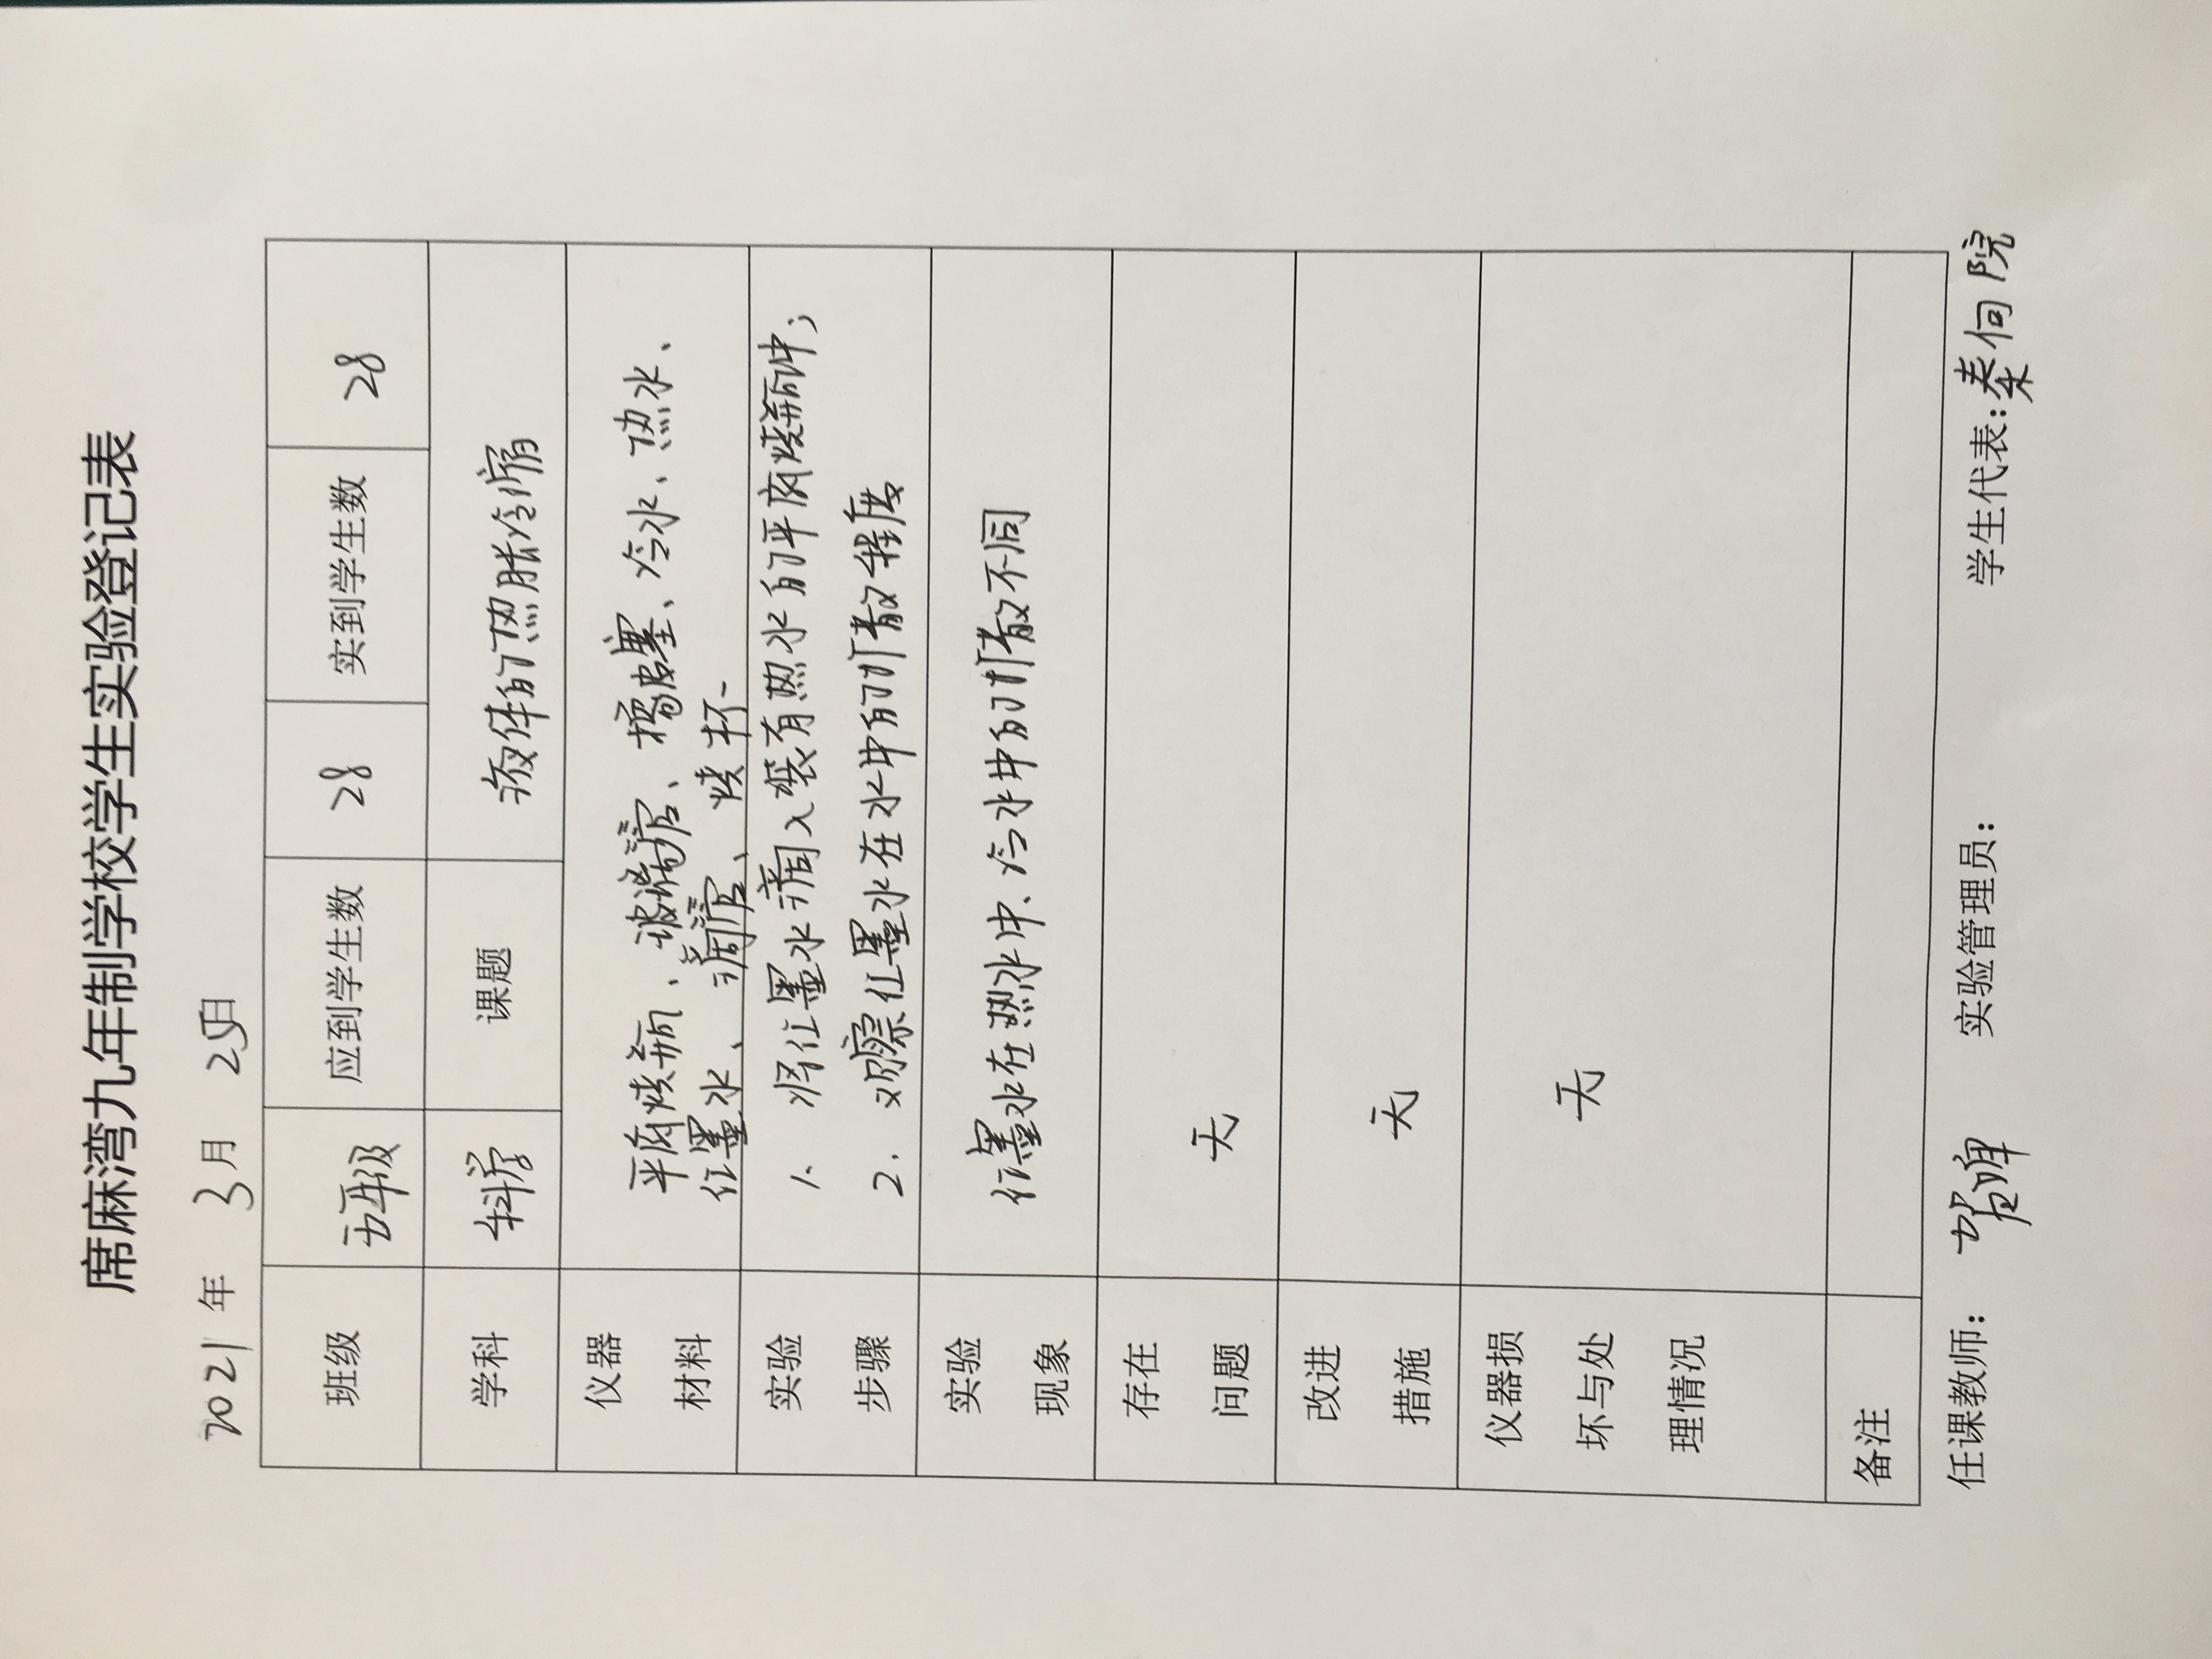 席麻湾九年制学校学生实验登记表
2021年 3月 25日
班级 五年级 应到学生数 28 实到学生数 28
学科 科学 课题 液体的热胀冷缩
仪器 平底烧瓶、玻璃管、橡皮塞、冷水、热水、
材料 红墨水、滴管、烧杯
实验 1. 将红墨水滴入装有热水的平底烧瓶中;
步骤 2. 观察红墨水在水中的扩散程度
实验 红墨水在热水中、冷水中的扩散不同
现象
存在 无
问题
改进 无
措施
仪器损 无
坏与处
理情况
备注
任课教师: 实验管理员: 学生代表:秦向院